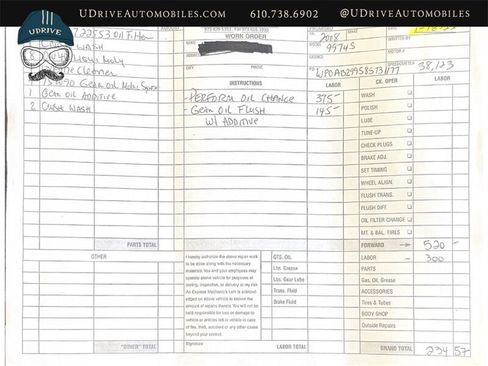 UDriveAutomobiles.com 610.738.6902 @UDriveAutomobiles
UDRIVE
WORK ORDER
2008
997 4S
38,123
WASH
Gear Oil Additive
2 Crush WASH
INSTRUCTIONS
LABOR
PERFORM OIL CHANGE 375-
- Gear Oil Flush 145-
w/ ADDITIVE
CK. OPER
LABOR
WASH
POLISH
LUBE
TUNE-UP
CHECK PLUGS
BRAKE ADJ.
SET TIMING
WHEEL ALIGN.
FLUSH TRANS.
FLUSH DIFF.
OIL FILTER CHANGE
MT. & BAL. TIRES
PARTS TOTAL
FORWARD 520-
OTHER
LABOR - 300
I hereby authorize the above repair work
to be done along with the necessary
materials. You and your employees may
operate above vehicle for purposes of
testing, inspection, or delivery at my risk.
An Express Mechanic's Lien is acknowl-
edged on above vehicle to secure the
amount of repairs thereto. You will not be
held responsible for loss or damage to
vehicle or articles left in vehicle in case
of fire, theft, accident or any other cause
beyond your control.
Signature
QTS. OIL
Lbs. Grease
Lbs. Gear Lube
Trans. Fluid
Brake Fluid
PARTS
Gas, Oil, Grease
ACCESSORIES
Tires & Tubes
BODY SHOP
Outside Repairs
"OTHER" TOTAL
LABOR TOTAL
GRAND TOTAL 234 57